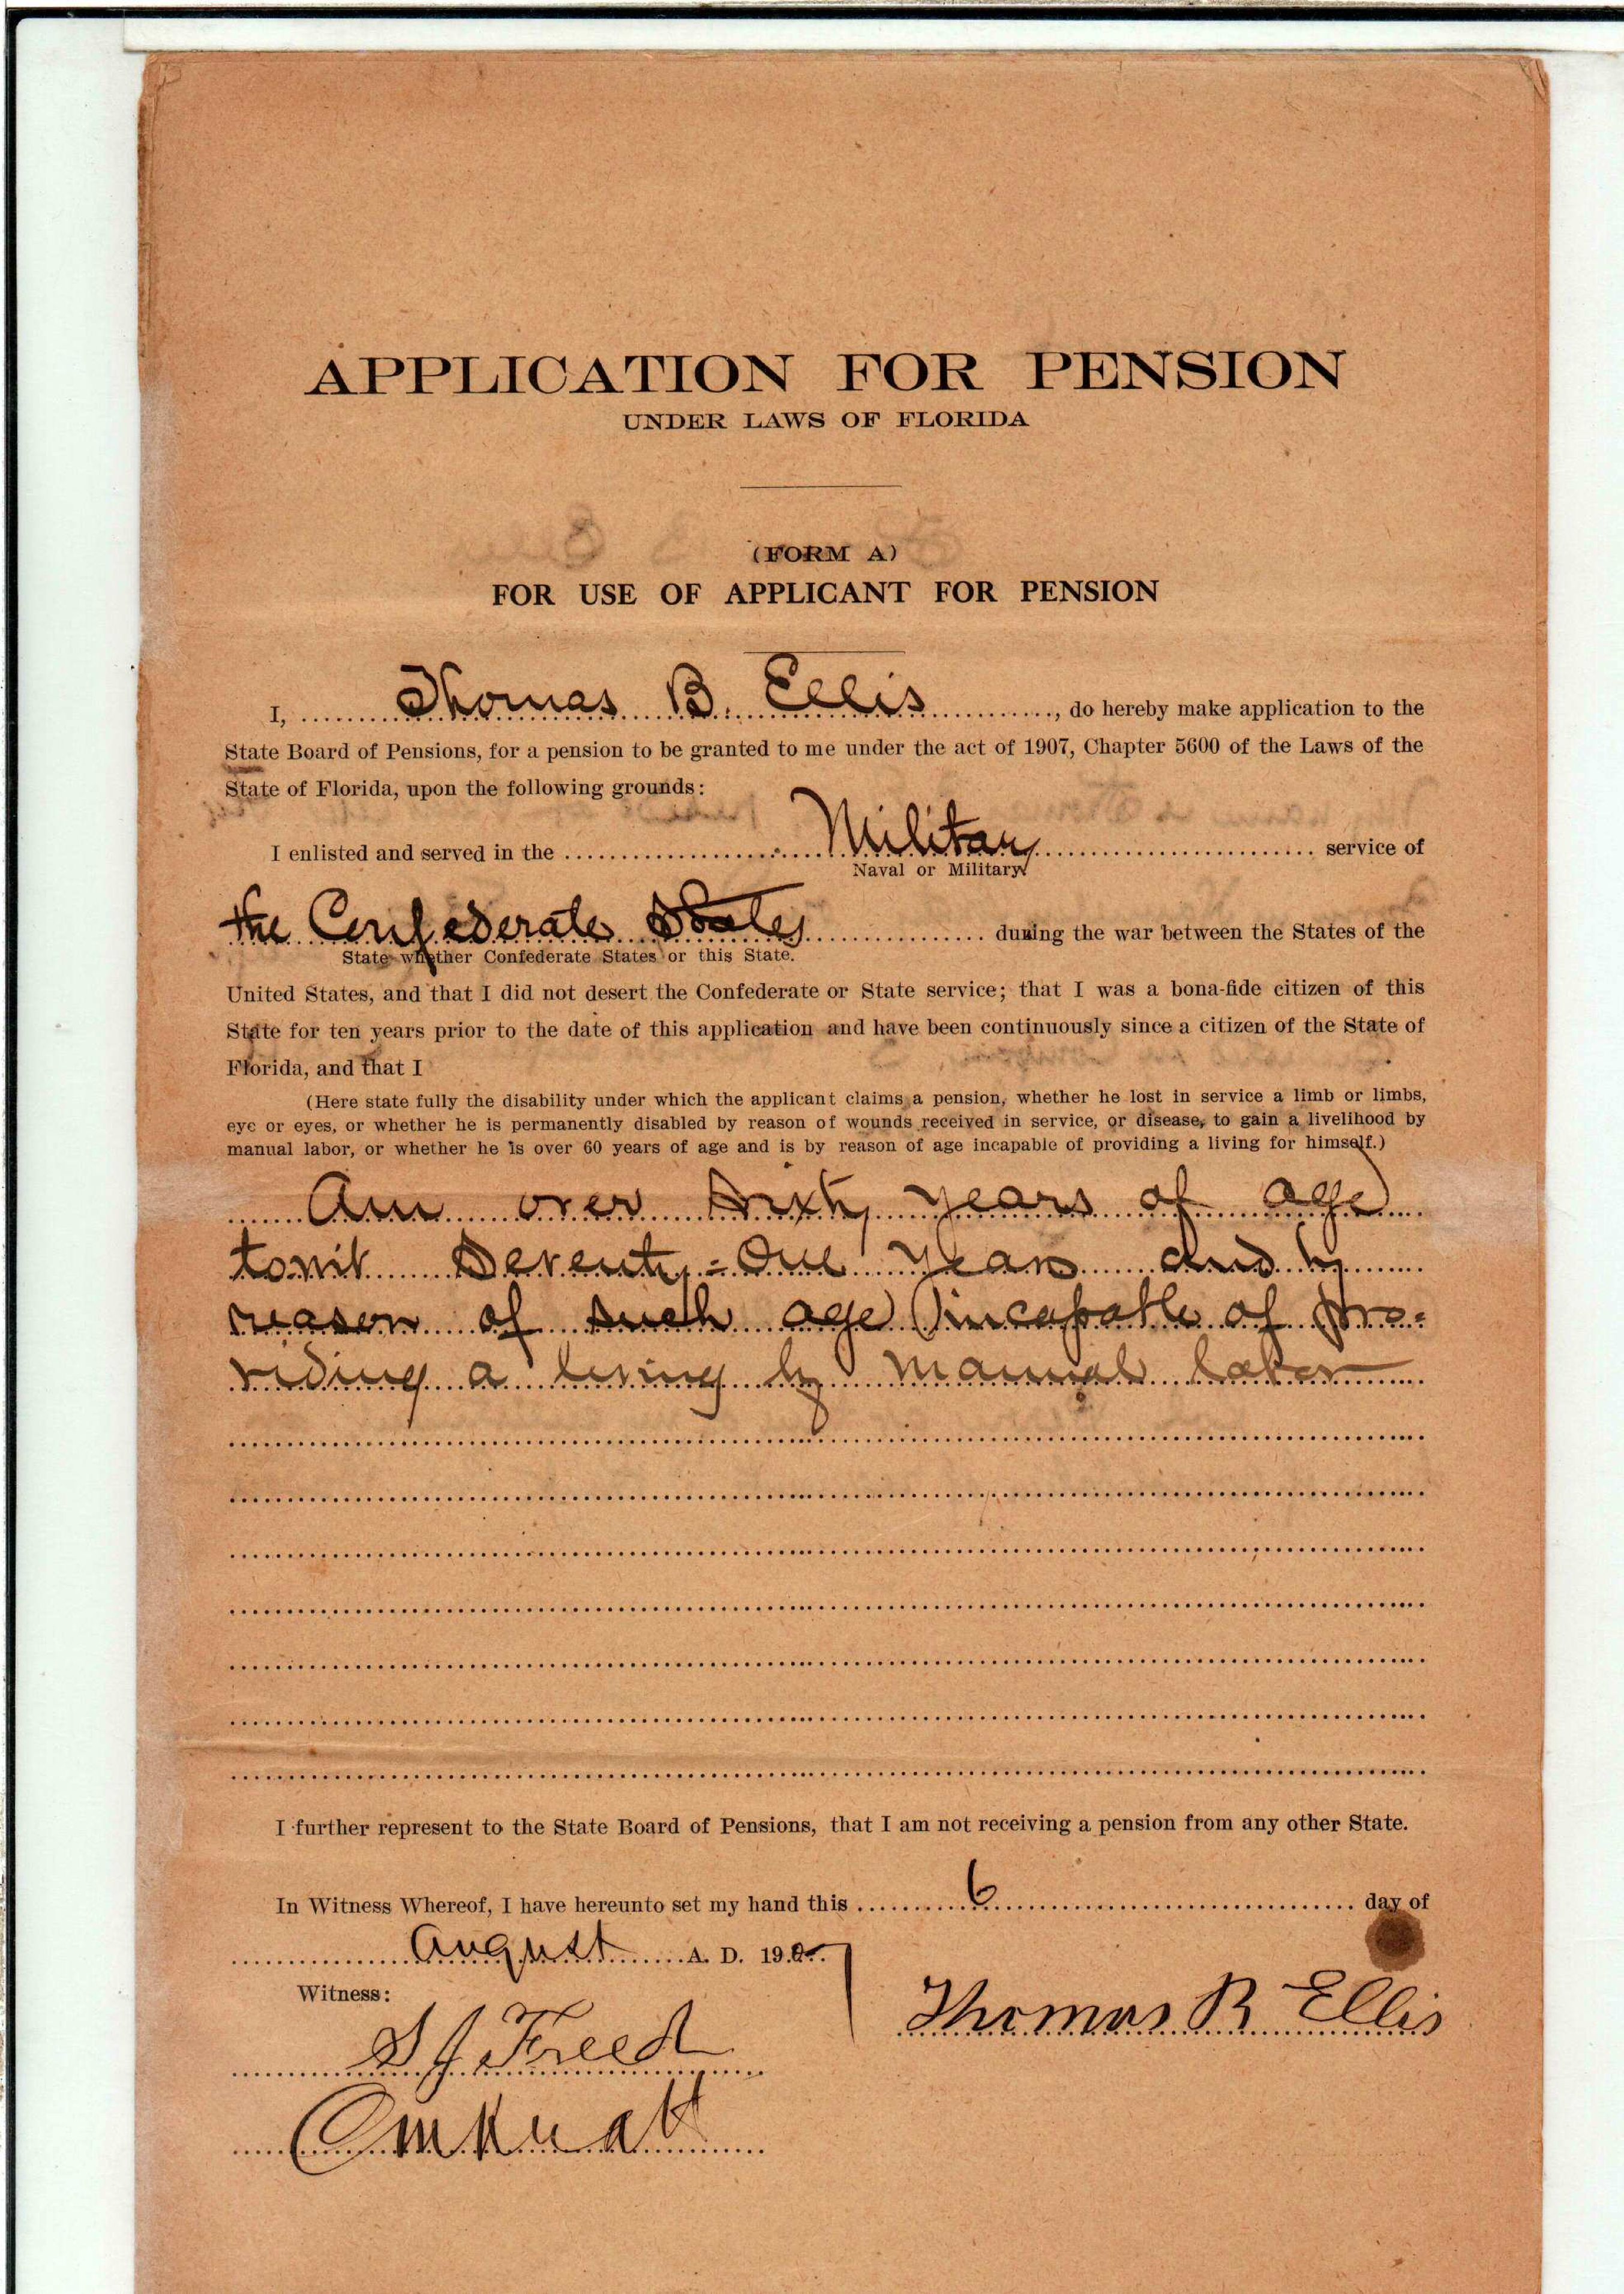 APPLICATION FOR PENSION
UNDER LAWS OF FLORIDA
(FORM A)
FOR USE OF APPLICANT FOR PENSION
I, Thomas B. Ellis, do hereby make application to the
State Board of Pensions, for a pension to be granted to me under the act of 1907, Chapter 5600 of the Laws of the
State of Florida, upon the following grounds:
I enlisted and served in the Military service of
Naval or Military
the Confederate States during the war between the States of the
State whether Confederate States or this State.
United States, and that I did not desert the Confederate or State service; that I was a bona-fide citizen of this
State for ten years prior to the date of this application and have been continuously since a citizen of the State of
Florida, and that I
(Here state fully the disability under which the applicant claims a pension, whether he lost in service a limb or limbs,
eye or eyes, or whether he is permanently disabled by reason of wounds received in service, or disease, to gain a livelihood by
manual labor, or whether he is over 60 years of age and is by reason of age incapable of providing a living for himself.)
Am over sixty years of age
towit Seventy-One years and by
reason of such age incapable of pro-
viding a living by manual labor
I further represent to the State Board of Pensions, that I am not receiving a pension from any other State.
In Witness Whereof, I have hereunto set my hand this 6 day of
August A. D. 190
Witness:
Thomas B Ellis
S J Freed